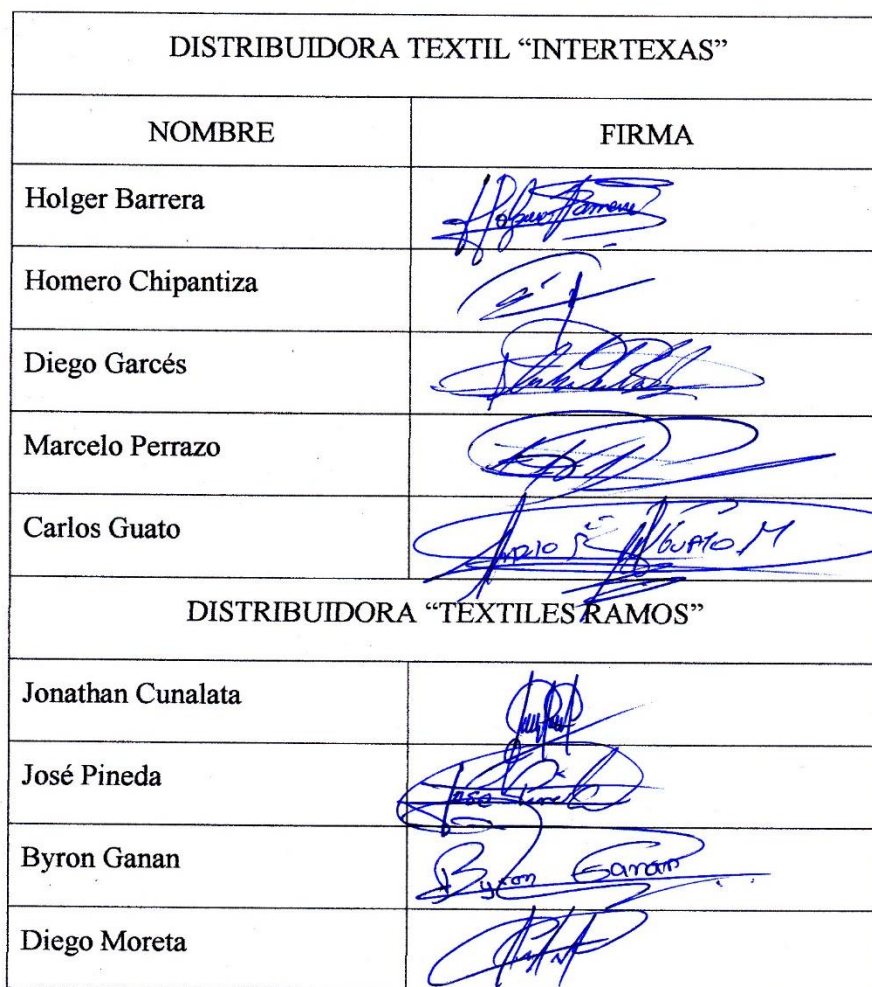 DISTRIBUIDORA TEXTIL “INTERTEXAS”
NOMBRE FIRMA
Holger Barrera
Homero Chipantiza
Diego Garcés
Marcelo Perrazo
Carlos Guato GUATO M
DISTRIBUIDORA “TEXTILES RAMOS”
Jonathan Cunalata
José Pineda Jose
Byron Ganan Byron Ganan
Diego Moreta